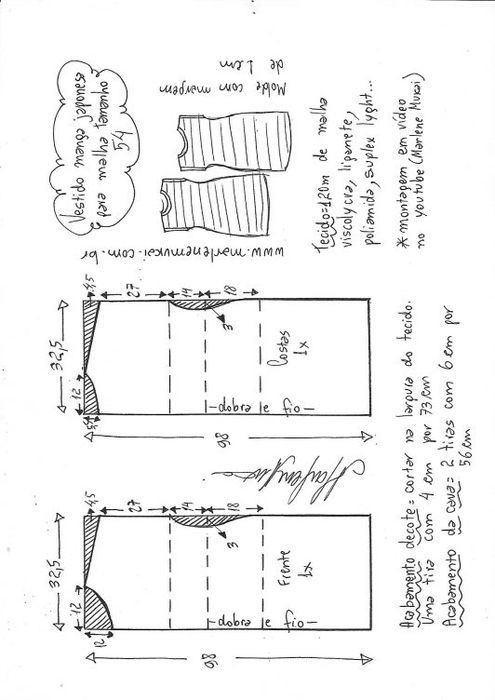 Vestido manga japonesa
para malha tamanho
54
Molde com margem
de 1 cm
www.marlenemukai.com.br
Tecido=1,20m de malha
viscolycra, liganete,
poliamida, suplex lyght...
*montagem em vídeo
no youtube (Marlene Mukai)
32,5
4,5
12
27
14
18
3
Costas
1x
dobra e fio
32,5
4,5
12
12
27
14
18
3
Frente
1x
dobra e fio
Acabamento decote= cortar na largura do tecido.
Uma tira com 4 cm por 73cm
Acabamento da cava= 2 tiras com 6cm por
56cm